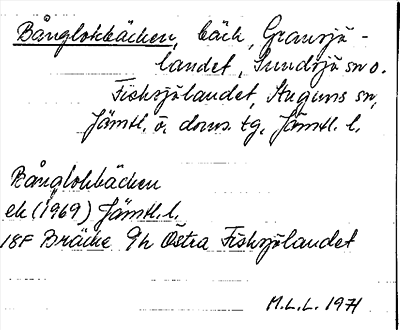 Bånglokbäcken, bäck, Gransjö-
landet, Sundsjö sn o.
Fisksjölandet, Hagnns sn,
Jämtl. ö. doms. tg, Jämtl. l.
Bånglokbäcken
ek (1969) Jämtl. l.
18F Bräcke 9h Östra Fisksjölandet
M.L.L. 1971